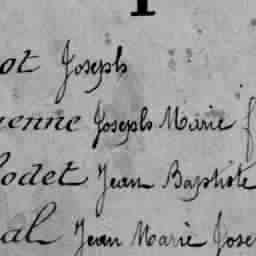 ot Joseph
enne Joseph Marie
odet Jean Baptiste
al Jean Marie Jose